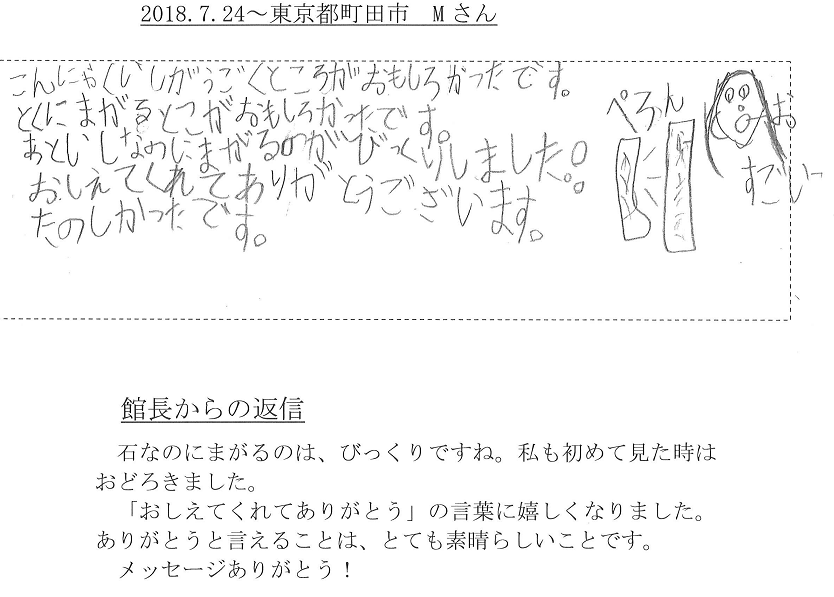 2018.7.24～東京都町田市　Mさん
こんにゃくいしがうごくところがおもしろかったです。
とくにまがるとこがおもしろかったです。
あといしなのにまがるのがびっくりしました!!
おしえてくれてありがとうございます。
たのしかったです。
ぺろん
お
すごい～
館長からの返信
石なのにまがるのは、びっくりですね。私も初めて見た時は
おどろきました。
「おしえてくれてありがとう」の言葉に嬉しくなりました。
ありがとうと言えることは、とても素晴らしいことです。
メッセージありがとう！